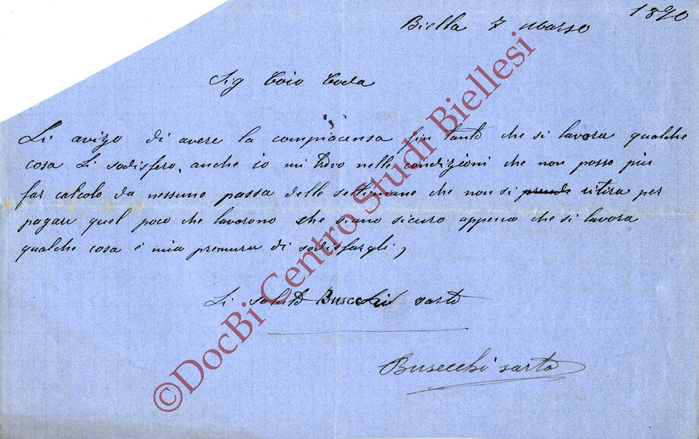 Biella 7 Marzo 1890
Sig Coio Coda
Li avizo di avere la compiacensa fin tanto che si lavora qualche
cosa Li sodisfero, anche io mi trovo nelle condizioni che non posso piu
far calcolo da nessuno passa delle settimane che non si prende ritira per
pagare quel poco che lavorono che siano sicuro appena che si lavora
qualche cosa é mia premura di sodisfargli,
Li saluto Busecchi sarto
Busecchi sarto
©DocBi Centro Studi Biellesi